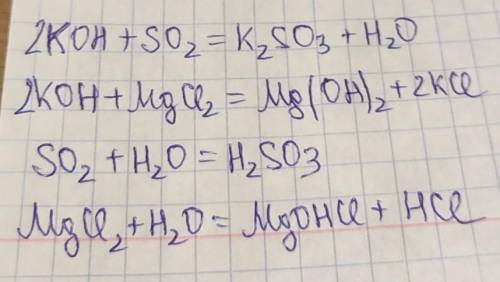 2KOH + SO₂ = K₂SO₃ + H₂O
2KOH + MgCl₂ = Mg(OH)₂ + 2KCl
SO₂ + H₂O = H₂SO₃
MgCl₂ + H₂O = MgOHCl + HCl